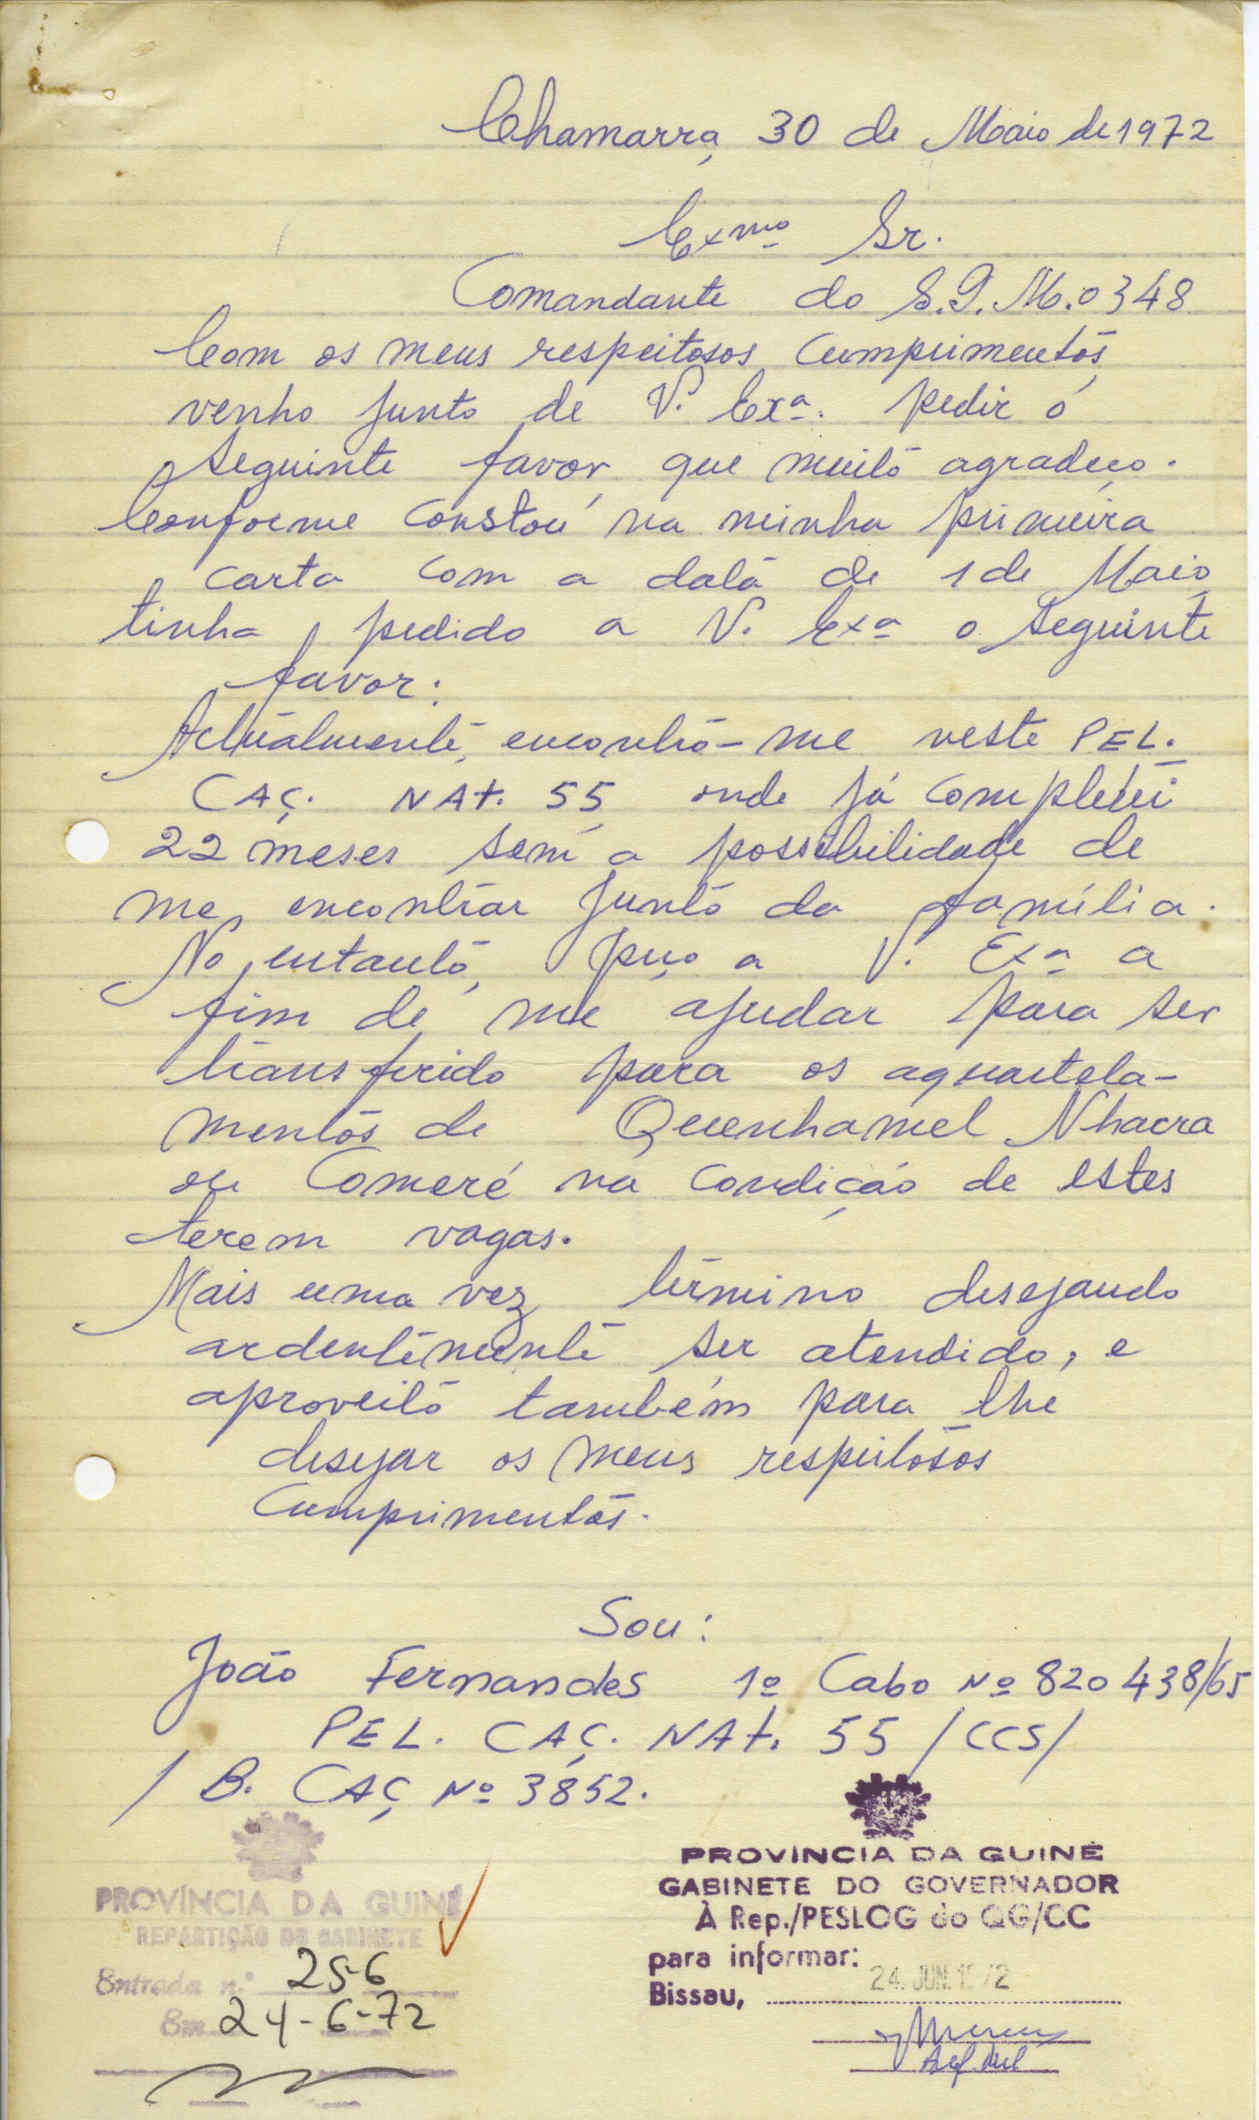 Chamarra, 30 de Maio de 1972
Exmo Sr.
Comandante do S.P.M. 0348
Com os meus respeitosos cumprimentos
venho junto de V. Exª. pedir o
seguinte favor, que muito agradeço.
Conforme constou na minha primeira
carta com a data de 1 de Maio,
tinha pedido a V. Exª o seguinte
favor:
Actualmente, encontro-me neste PEL.
CAÇ. NAT. 55, onde já completei
22 meses sem a possibilidade de
me encontrar junto da família.
No entanto, peço a V. Exª a
fim de me ajudar para ser
transferido para os aquartela-
mentos de Quenhamel, Nhacra
ou Comeré na condição de estes
terem vagas.
Mais uma vez término desejando
ardentemente ser atendido, e
aproveito também para lhe
desejar os meus respeitosos
cumprimentos.
Sou:
João Fernandes 1º Cabo Nº 820438/65
PEL. CAÇ. NAT. 55 /CCS/
/ B. CAÇ Nº 3852.
PROVÍNCIA DA GUINÉ
REPARTIÇÃO DO GABINETE
Entrada n.º 256
Em 24-6-72
PROVÍNCIA DA GUINÉ
GABINETE DO GOVERNADOR
À Rep./PESLOG do QG/CC
para informar:
Bissau, 24. JUN. 1972